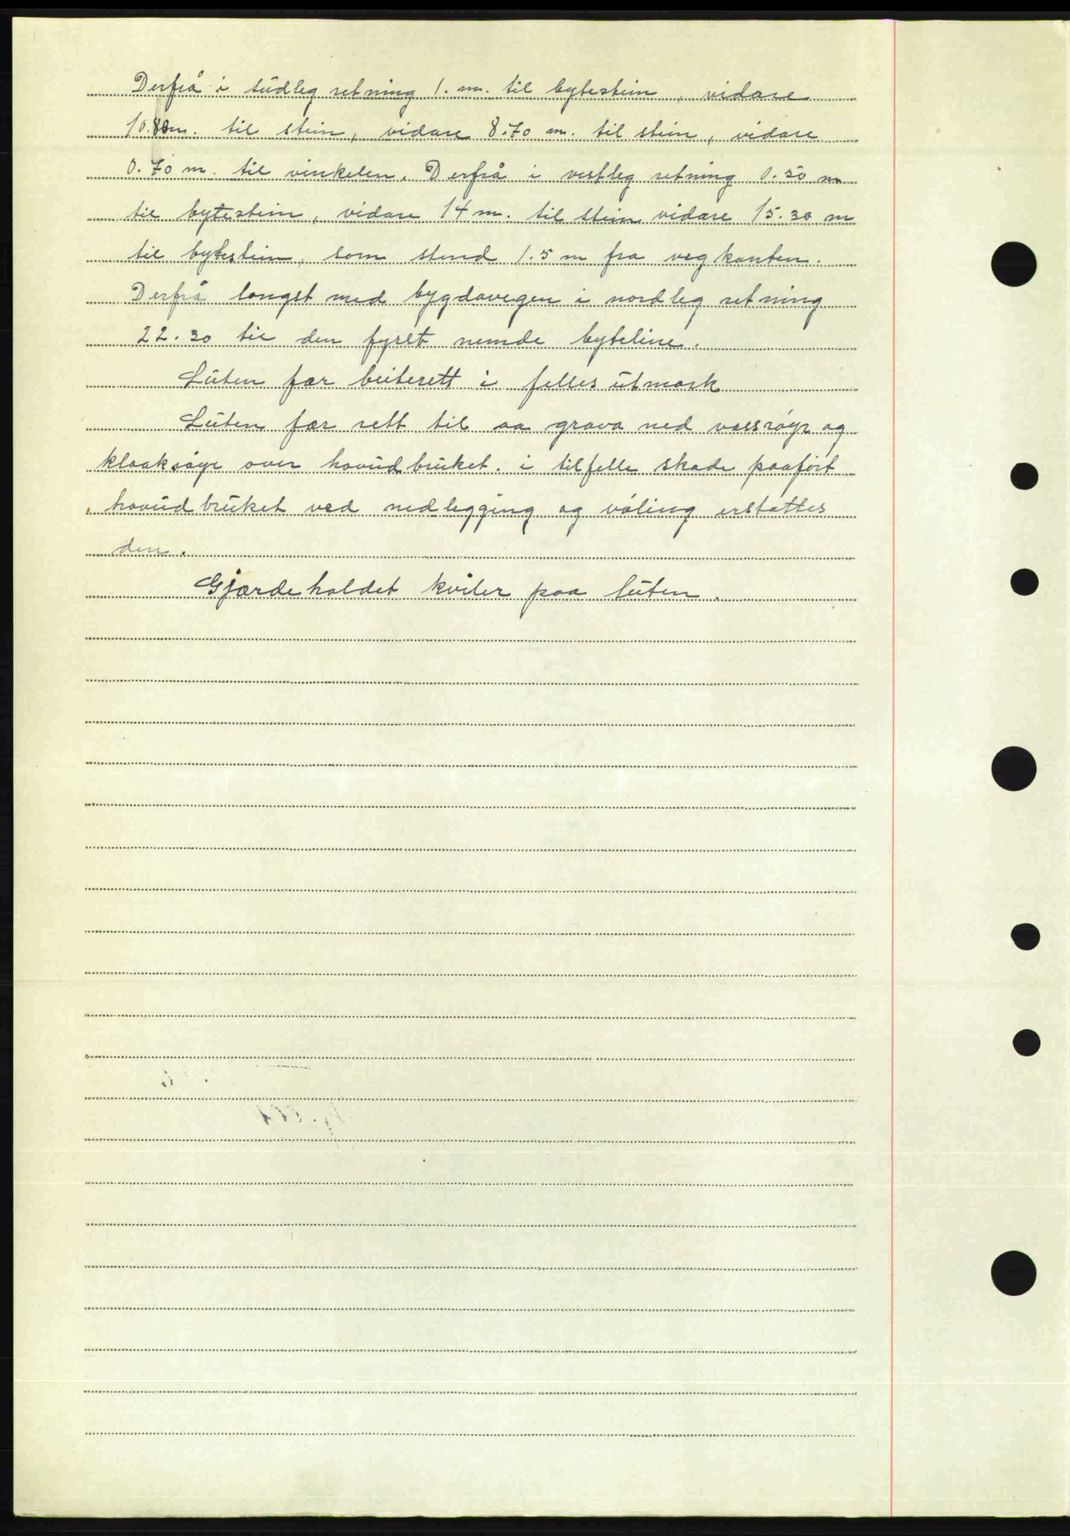 Derfrå i südleg retning 1. m. til bytestein, vidare
10.80m. til stein, vidare 8.70 m. til stein, vidare
0.70 m. til vinkelen. Derfrå i vestleg retning 0.50 m
til bytestein, vidare 14 m. til stein vidare 15.30 m
til bytestein, som stend 1.5 m fra vegkanten.
Derfrå langst med bygdavegen i nordleg retning
22.30 til den fyrst nemde byteline.
Lüten fær beiterett i felles ütmark
Lüten fær rett til aa grava ned vassröyr og
kloakröyr over hovüdbrüket. i tilfelle skade paafört
hovüdbrüket ved nedlegging og völing erstattes
den.
Gjærdehaldet kviler paa lüten.